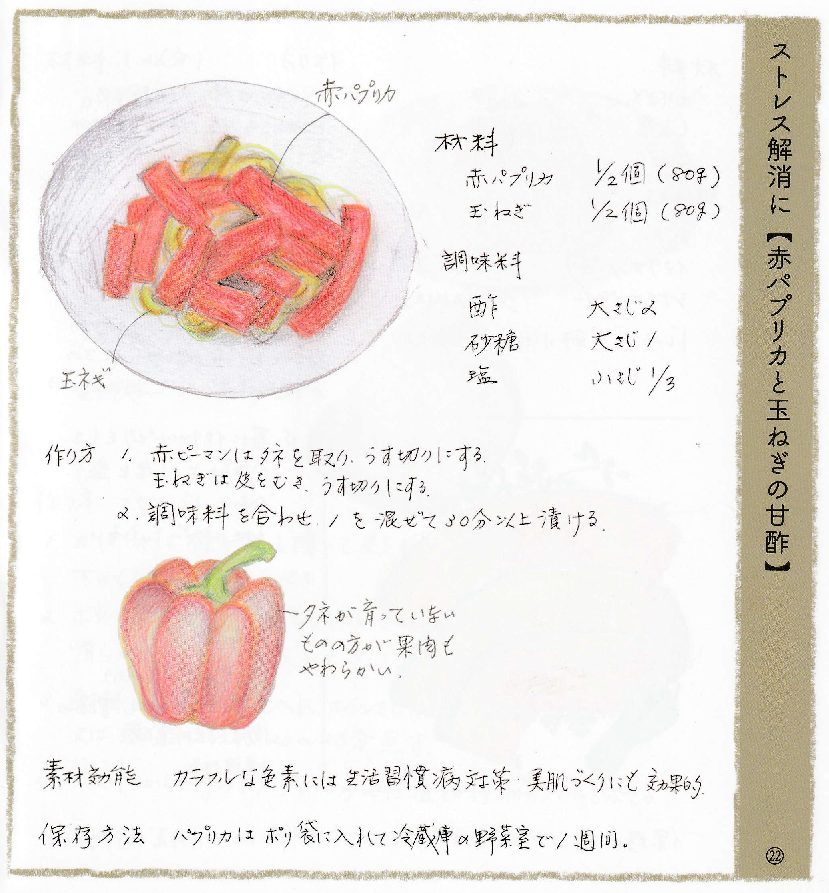 ストレス解消に【赤パプリカと玉ねぎの甘酢】
赤パプリカ
玉ネギ
材料
赤パプリカ 1/2個(80g)
玉ねぎ 1/2個(80g)
調味料
酢 大さじ2
砂糖 大さじ1
塩 小さじ1/3
作り方 1. 赤ピーマンはタネを取り、うす切りにする。
玉ねぎは皮をむき、うす切りにする。
2. 調味料を合わせ、1を混ぜて30分以上漬ける。
タネが育っていない
ものの方が果肉も
やわらかい。
素材効能 カラフルな色素には生活習慣病対策・美肌づくりにも効果的。
保存方法 パプリカはポリ袋に入れて冷蔵庫の野菜室で1週間。
㉒